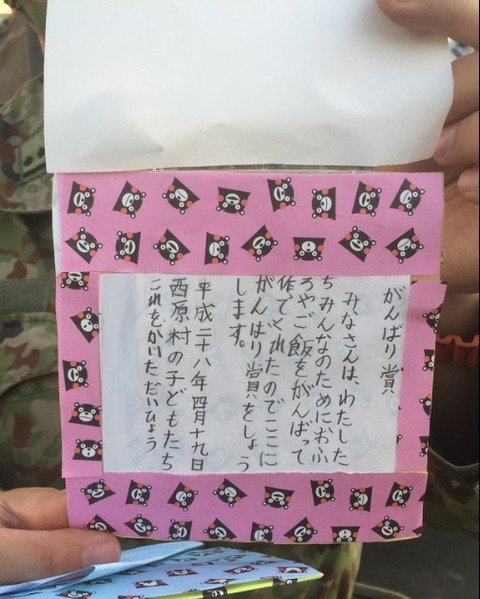 がんばり賞
みなさんは、わたした
ちみんなのためにおふ
ろやご飯をがんばって
作てくれたのでここに
がんばり賞をしょう
します。
平成二十八年四月十九日
西原村の子どもたち
これをかいただいひょう